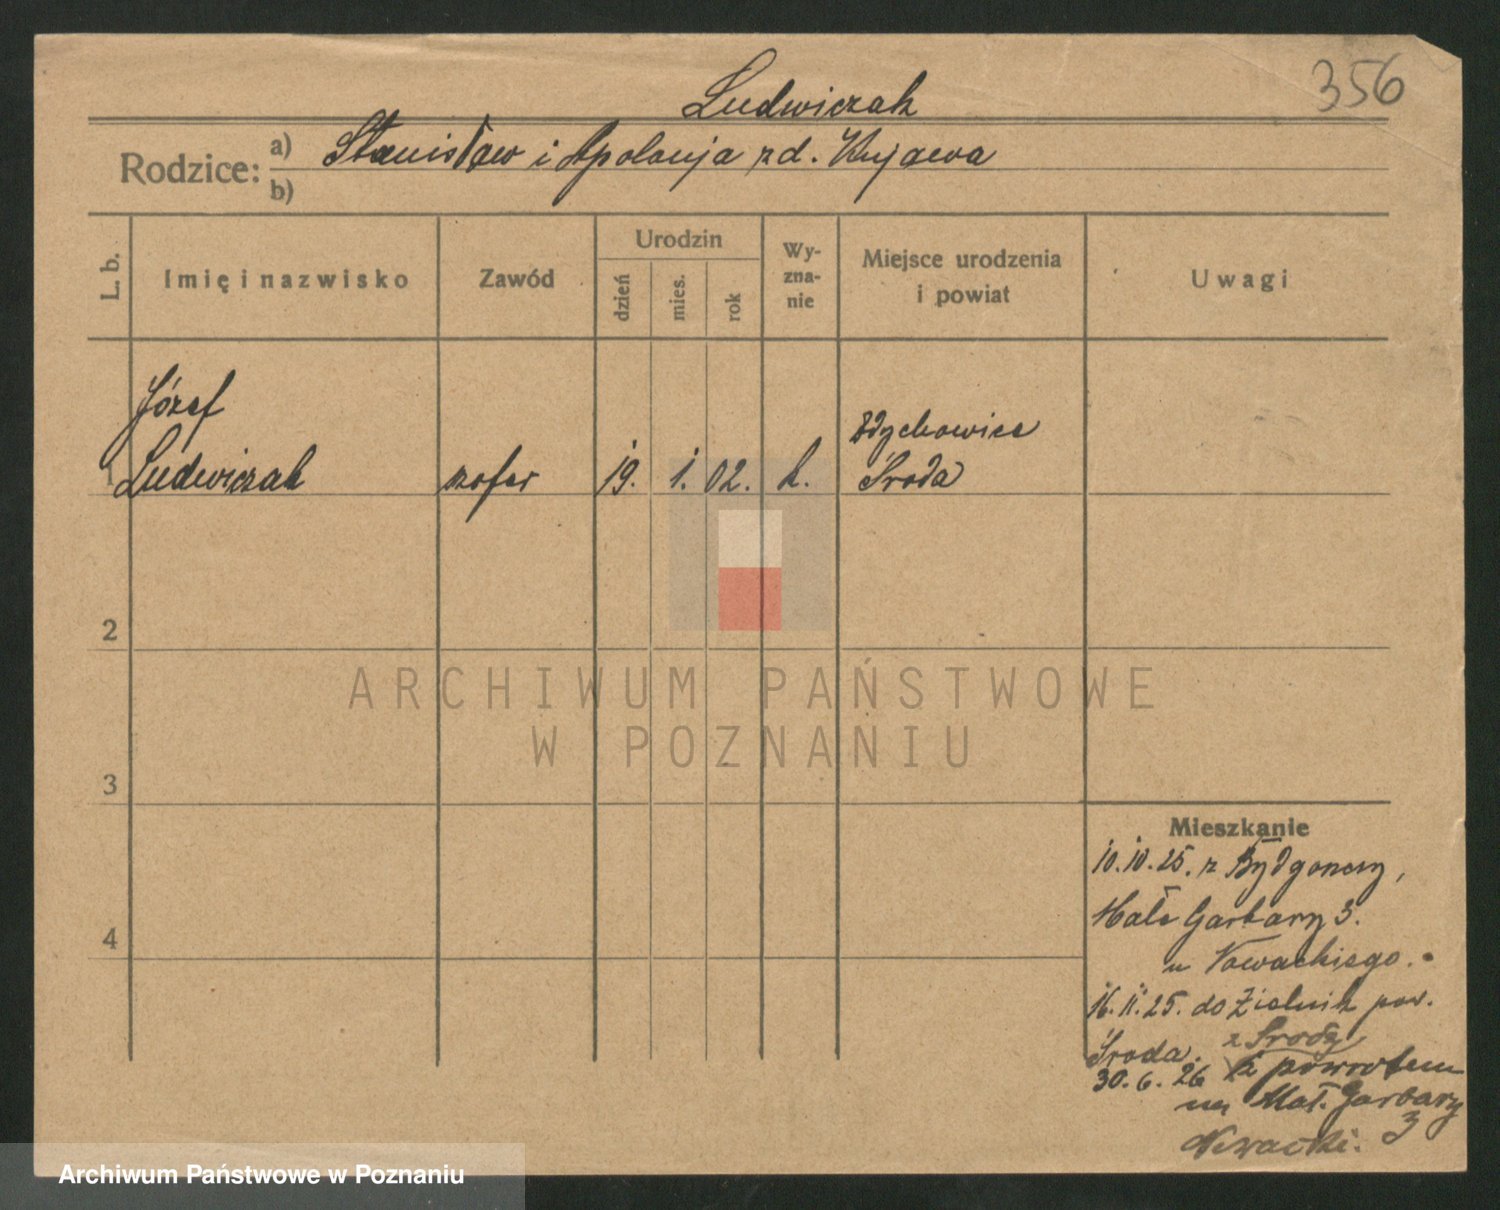 356
Ludwiczak
Rodzice: a) Stanisław i Apolonja zd. Kujawa
b)
L. b.
Imię i nazwisko
Zawód
Urodzin
dzień
mies.
rok
Wy-
zna-
nie
Miejsce urodzenia
i powiat
Uwagi
Józef
1 Ludwiczak szofer 19. 1. 02. k.
Zdychowice
Środa
2
3
4
Mieszkanie
10.10.25. z Bydgoszczy,
Małe Garbary 3.
u Nowackiego.
16.11.25. do Zielnik pow.
Środa. z Środy
30.6.26 z powrotem
na Mał. Garbary
3
Nowacki.
ARCHIWUM PAŃSTWOWE
W POZNANIU
Archiwum Państwowe w Poznaniu